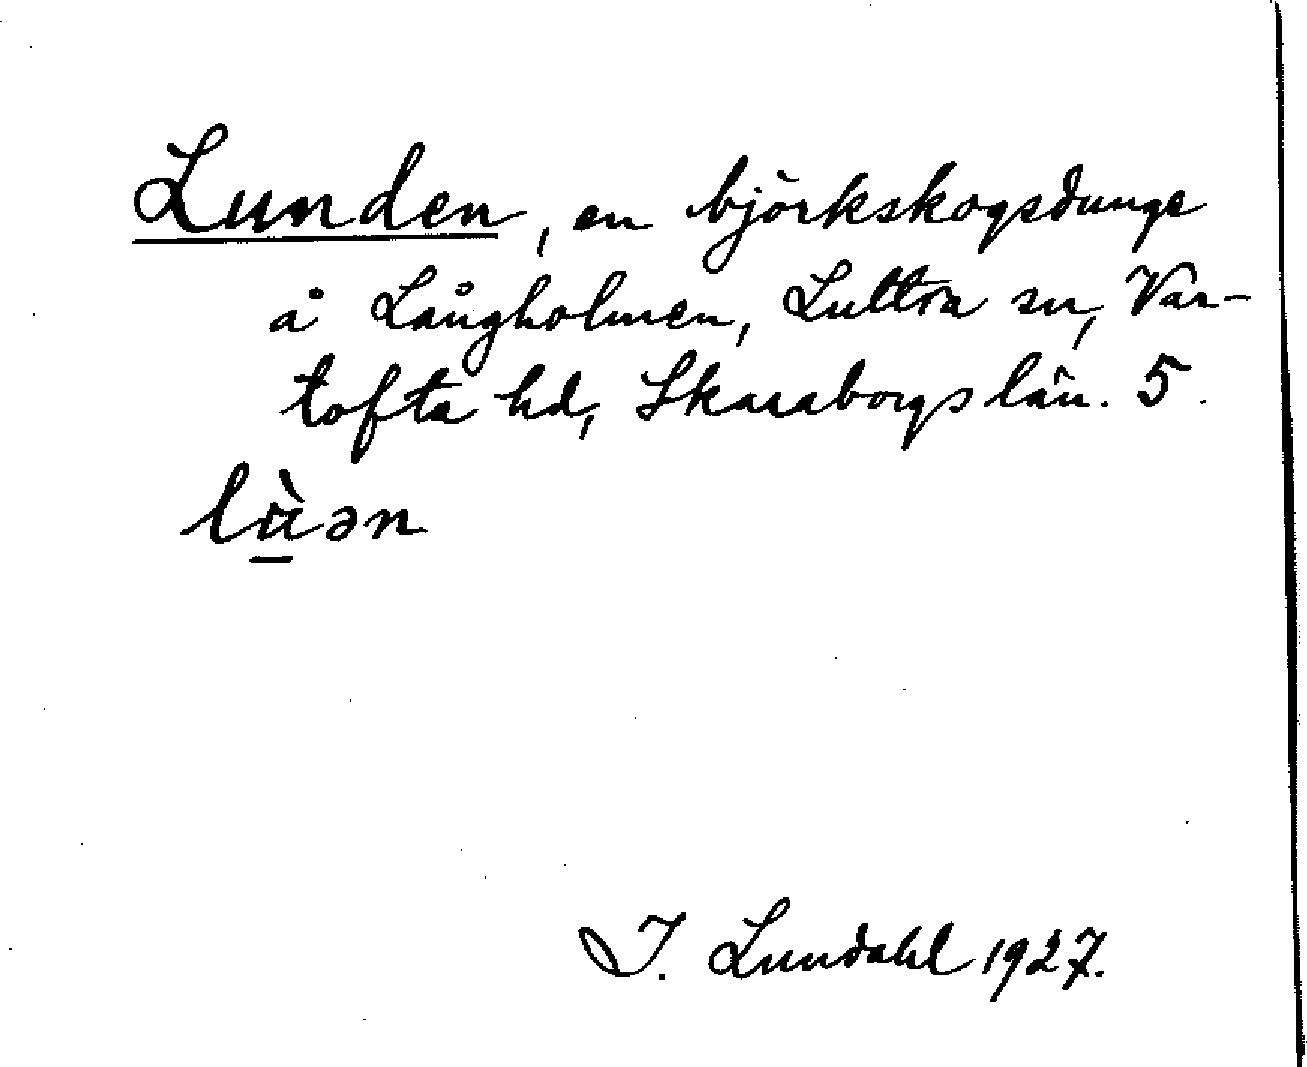 Lunden, en björkskogsdunge
å Långholmen, Luttra sn, Var-
tofta hd, Skaraborgs län. 5.
lù̲ən
I. Lundahl 1927.